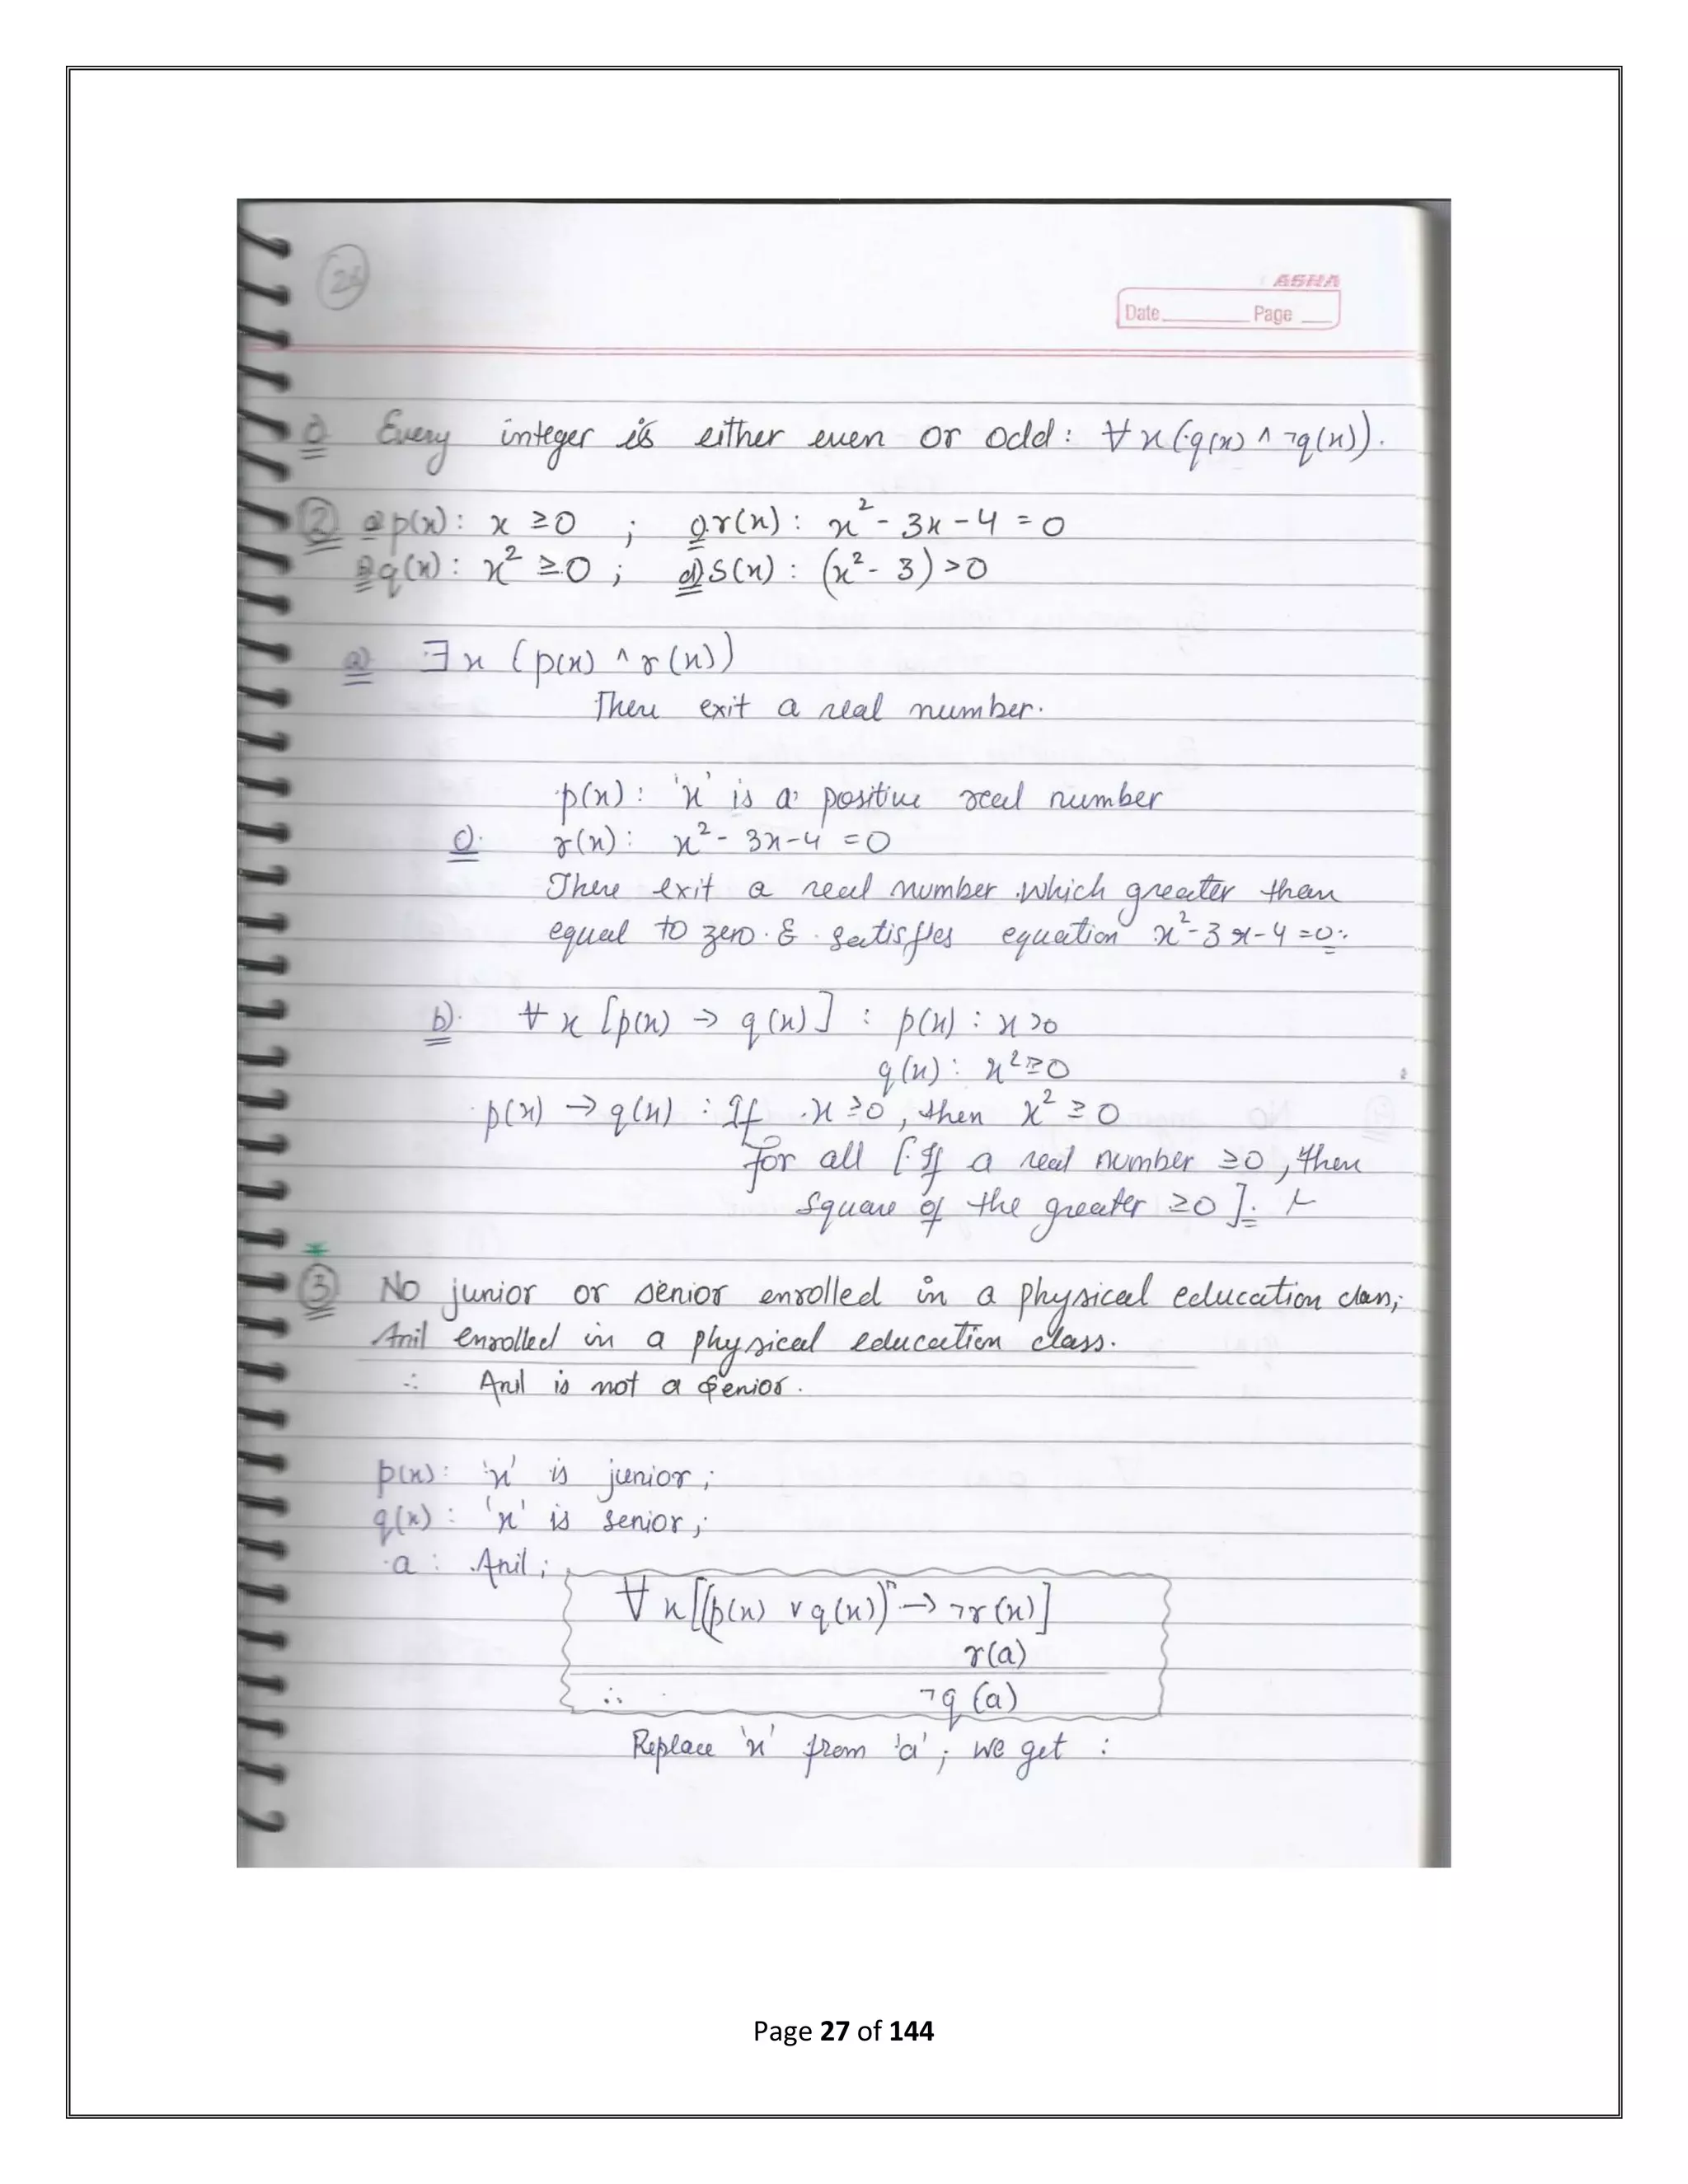 ASHA
Date Page
Every integer is either even or odd: ∀x(q(x) ∧ ¬q(x)).
② a p(x): x ≥0 ; c r(x): x² - 3x - 4 = 0
q(x): x² ≥ 0 ; d) s(x): (x² - 3) > 0
a) ∃x (p(x) ∧ r(x))
There exit a real number.
p(x): 'x' is a positive real number
c). r(x): x² - 3x - 4 = 0
There exit a real number which greater than
equal to zero & satisfies equation x² - 3x - 4 = 0.
b). ∀x [p(x) → q(x)] : p(x) : x>0
q(x): x² ≥ 0
p(x) → q(x) : If x ≥ 0, then x² ≥ 0
for all [If a real number ≥0, then
square of the greater ≥0].
③ No junior or senior enrolled in a physical education class;
Anil enrolled in a physical education class.
∴ Anil is not a senior.
p(x): 'x' is junior;
q(x): 'x' is senior;
a : Anil;
∀x[(p(x) ∨ q(x)) → ¬r(x)]
r(a)
∴ ¬q(a)
Replace 'x' from 'a'; we get :
Page 27 of 144